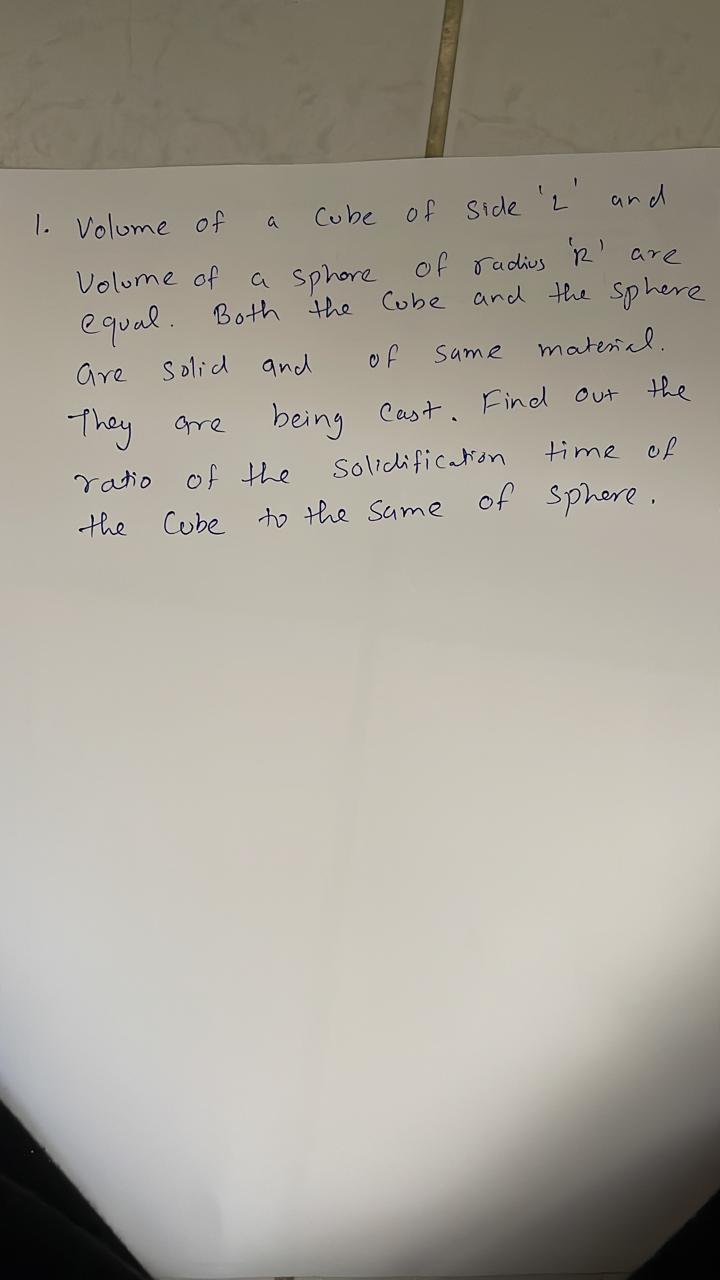 1. Volume of a Cube of Side 'L' and
Volume of a sphere of radius 'R' are
equal. Both the Cube and the sphere
are solid and of same material.
They are being cast. Find out the
ratio of the solidification time of
the Cube to the same of sphere.